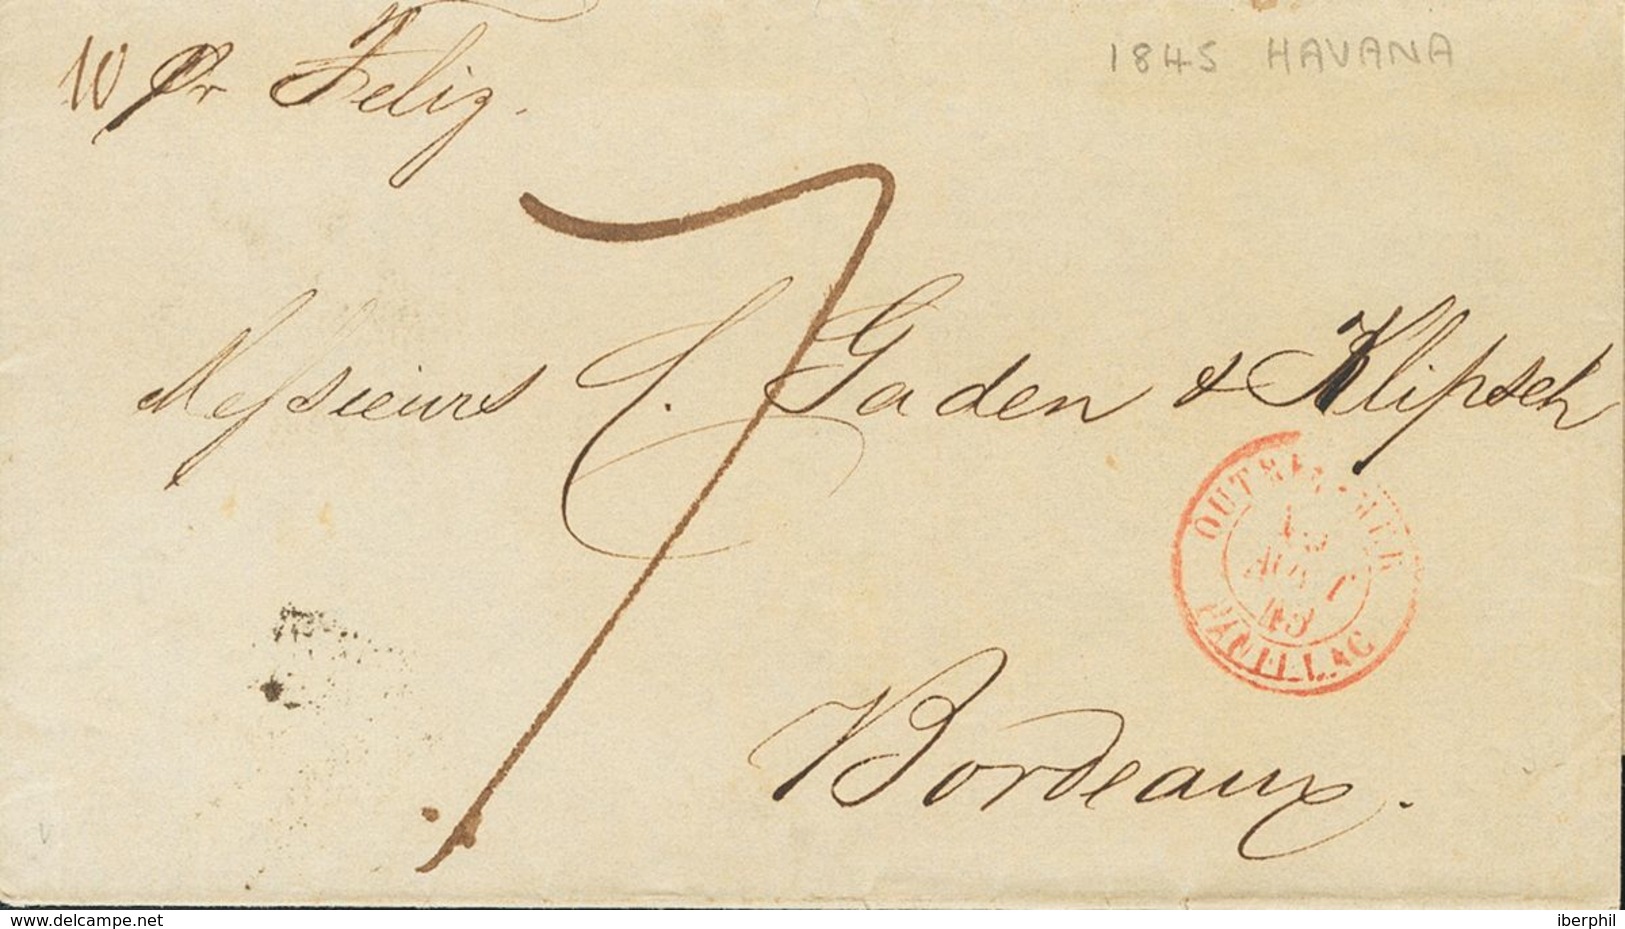 10 Pr Feliz.
1845 HAVANA
7
Messieurs C. Gaden & Klipsch
OUTRE-MER
AOUT
45
PAUILLAC
Bordeaux.
www.delcampe.net
iberphil